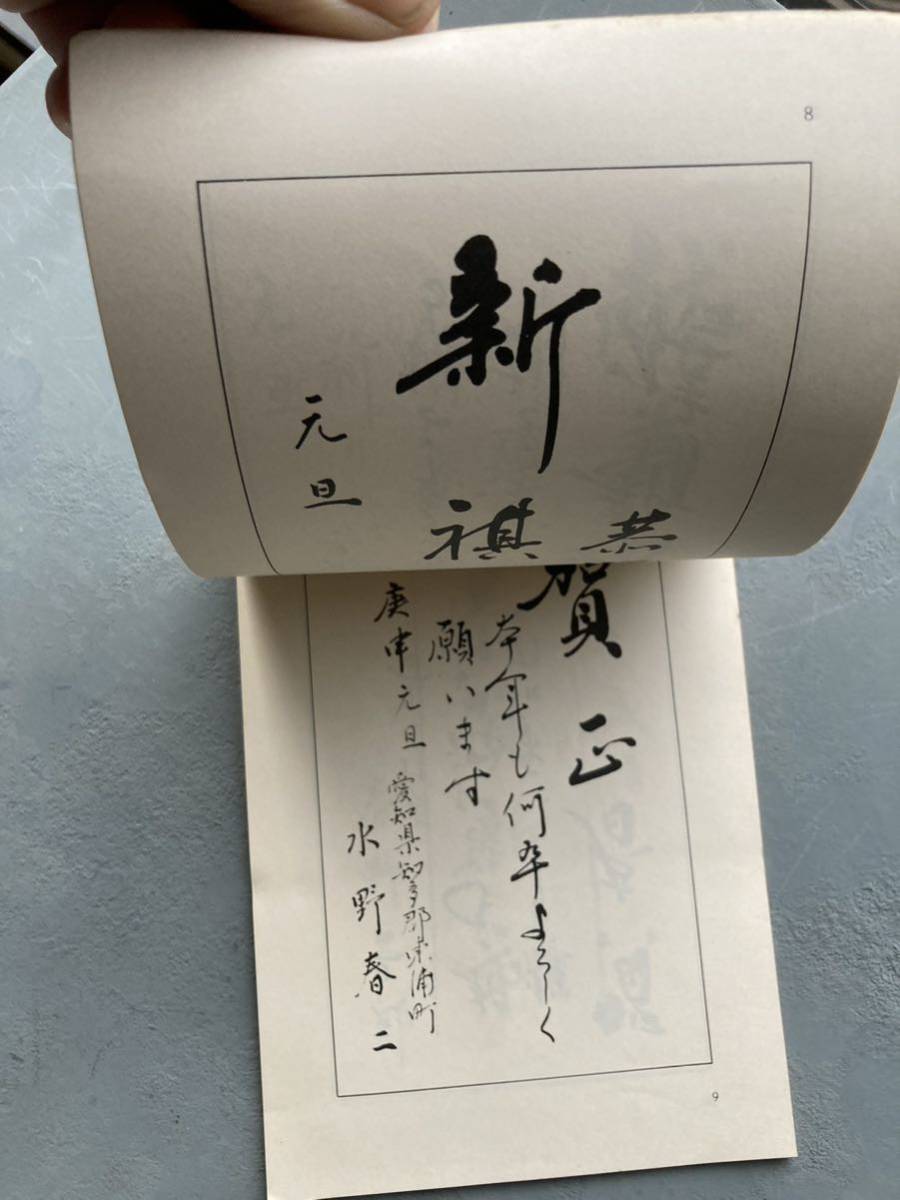 8
新
恭
祺
元旦
賀正
本年も何卒よろしく
願います
庚申元旦
愛知県知多郡東浦町
水野春二
9